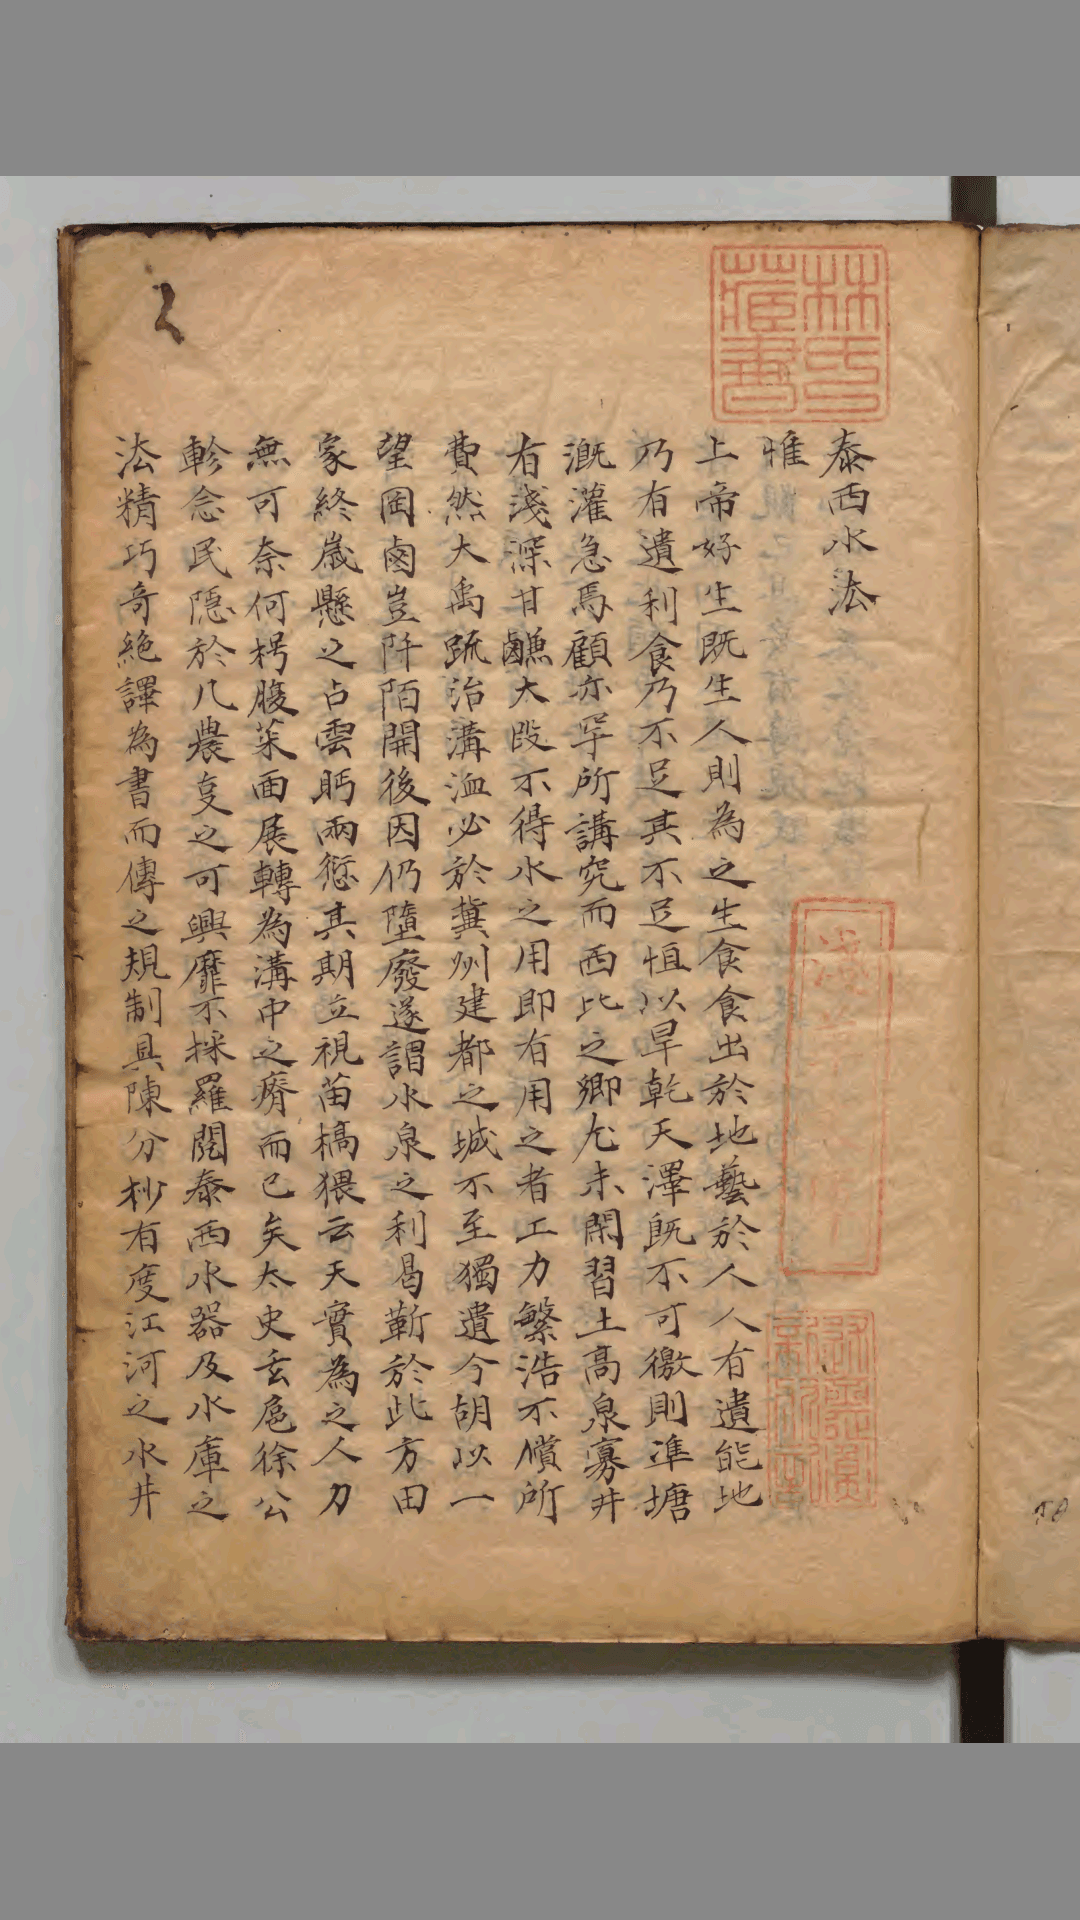 泰西水法
惟
上帝好生既生人則為之生食食出於地藝於人人有遺能地
乃有遺利食乃不足其不足恒以旱乾天澤既不可徼則準塘
溉灌急焉顧亦罕所講究而西北之鄉尤未閑習土高泉寡井
有淺深甘鹹大段不得水之用即有用之者工力繁浩不償所
費然大禹疏治溝洫必於冀州建都之域不至獨遺今胡以一
望罔鹵豈阡陌開後因仍墮廢遂謂水泉之利曷蘄於此方田
家終歲懸之占雲盻雨愆其期立視苗槁猥云天實為之人力
無可奈何枵腹菜面展轉為溝中之瘠而已矣太史玄扈徐公
軫念民隱於凡農叓之可興靡不採羅閱泰西水器及水庫之
法精巧奇絕譯為書而傳之規制具陳分杪有度江河之水井
林氏
藏書